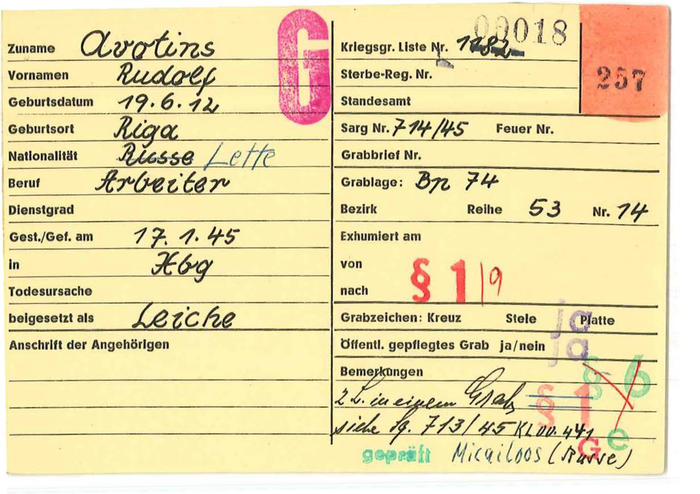 Zuname Avotins
Vornamen Rudolf
Geburtsdatum 19.6.12
Geburtsort Riga
Nationalität Russe Lette
Beruf Arbeiter
Dienstgrad
Gest./Gef. am 17.1.45
in Hbg
Todesursache
beigesetzt als Leiche
Anschrift der Angehörigen
G
00018
Kriegsgr. Liste Nr. 1182
257
Sterbe-Reg. Nr.
Standesamt
Sarg Nr. 714/45 Feuer Nr.
Grabbrief Nr.
Grablage: Bp 74
Bezirk Reihe 53 Nr. 14
Exhumiert am
von
nach
§ 1/9
Grabzeichen: Kreuz Stele Platte
ja
Öffentl. gepflegtes Grab ja/nein
ja
Bemerkungen
§ 6
2 L. in einem Grab
§ 1
siehe Sg. 713/45 KL 441
G e
geprüft Micailoos (Russe)